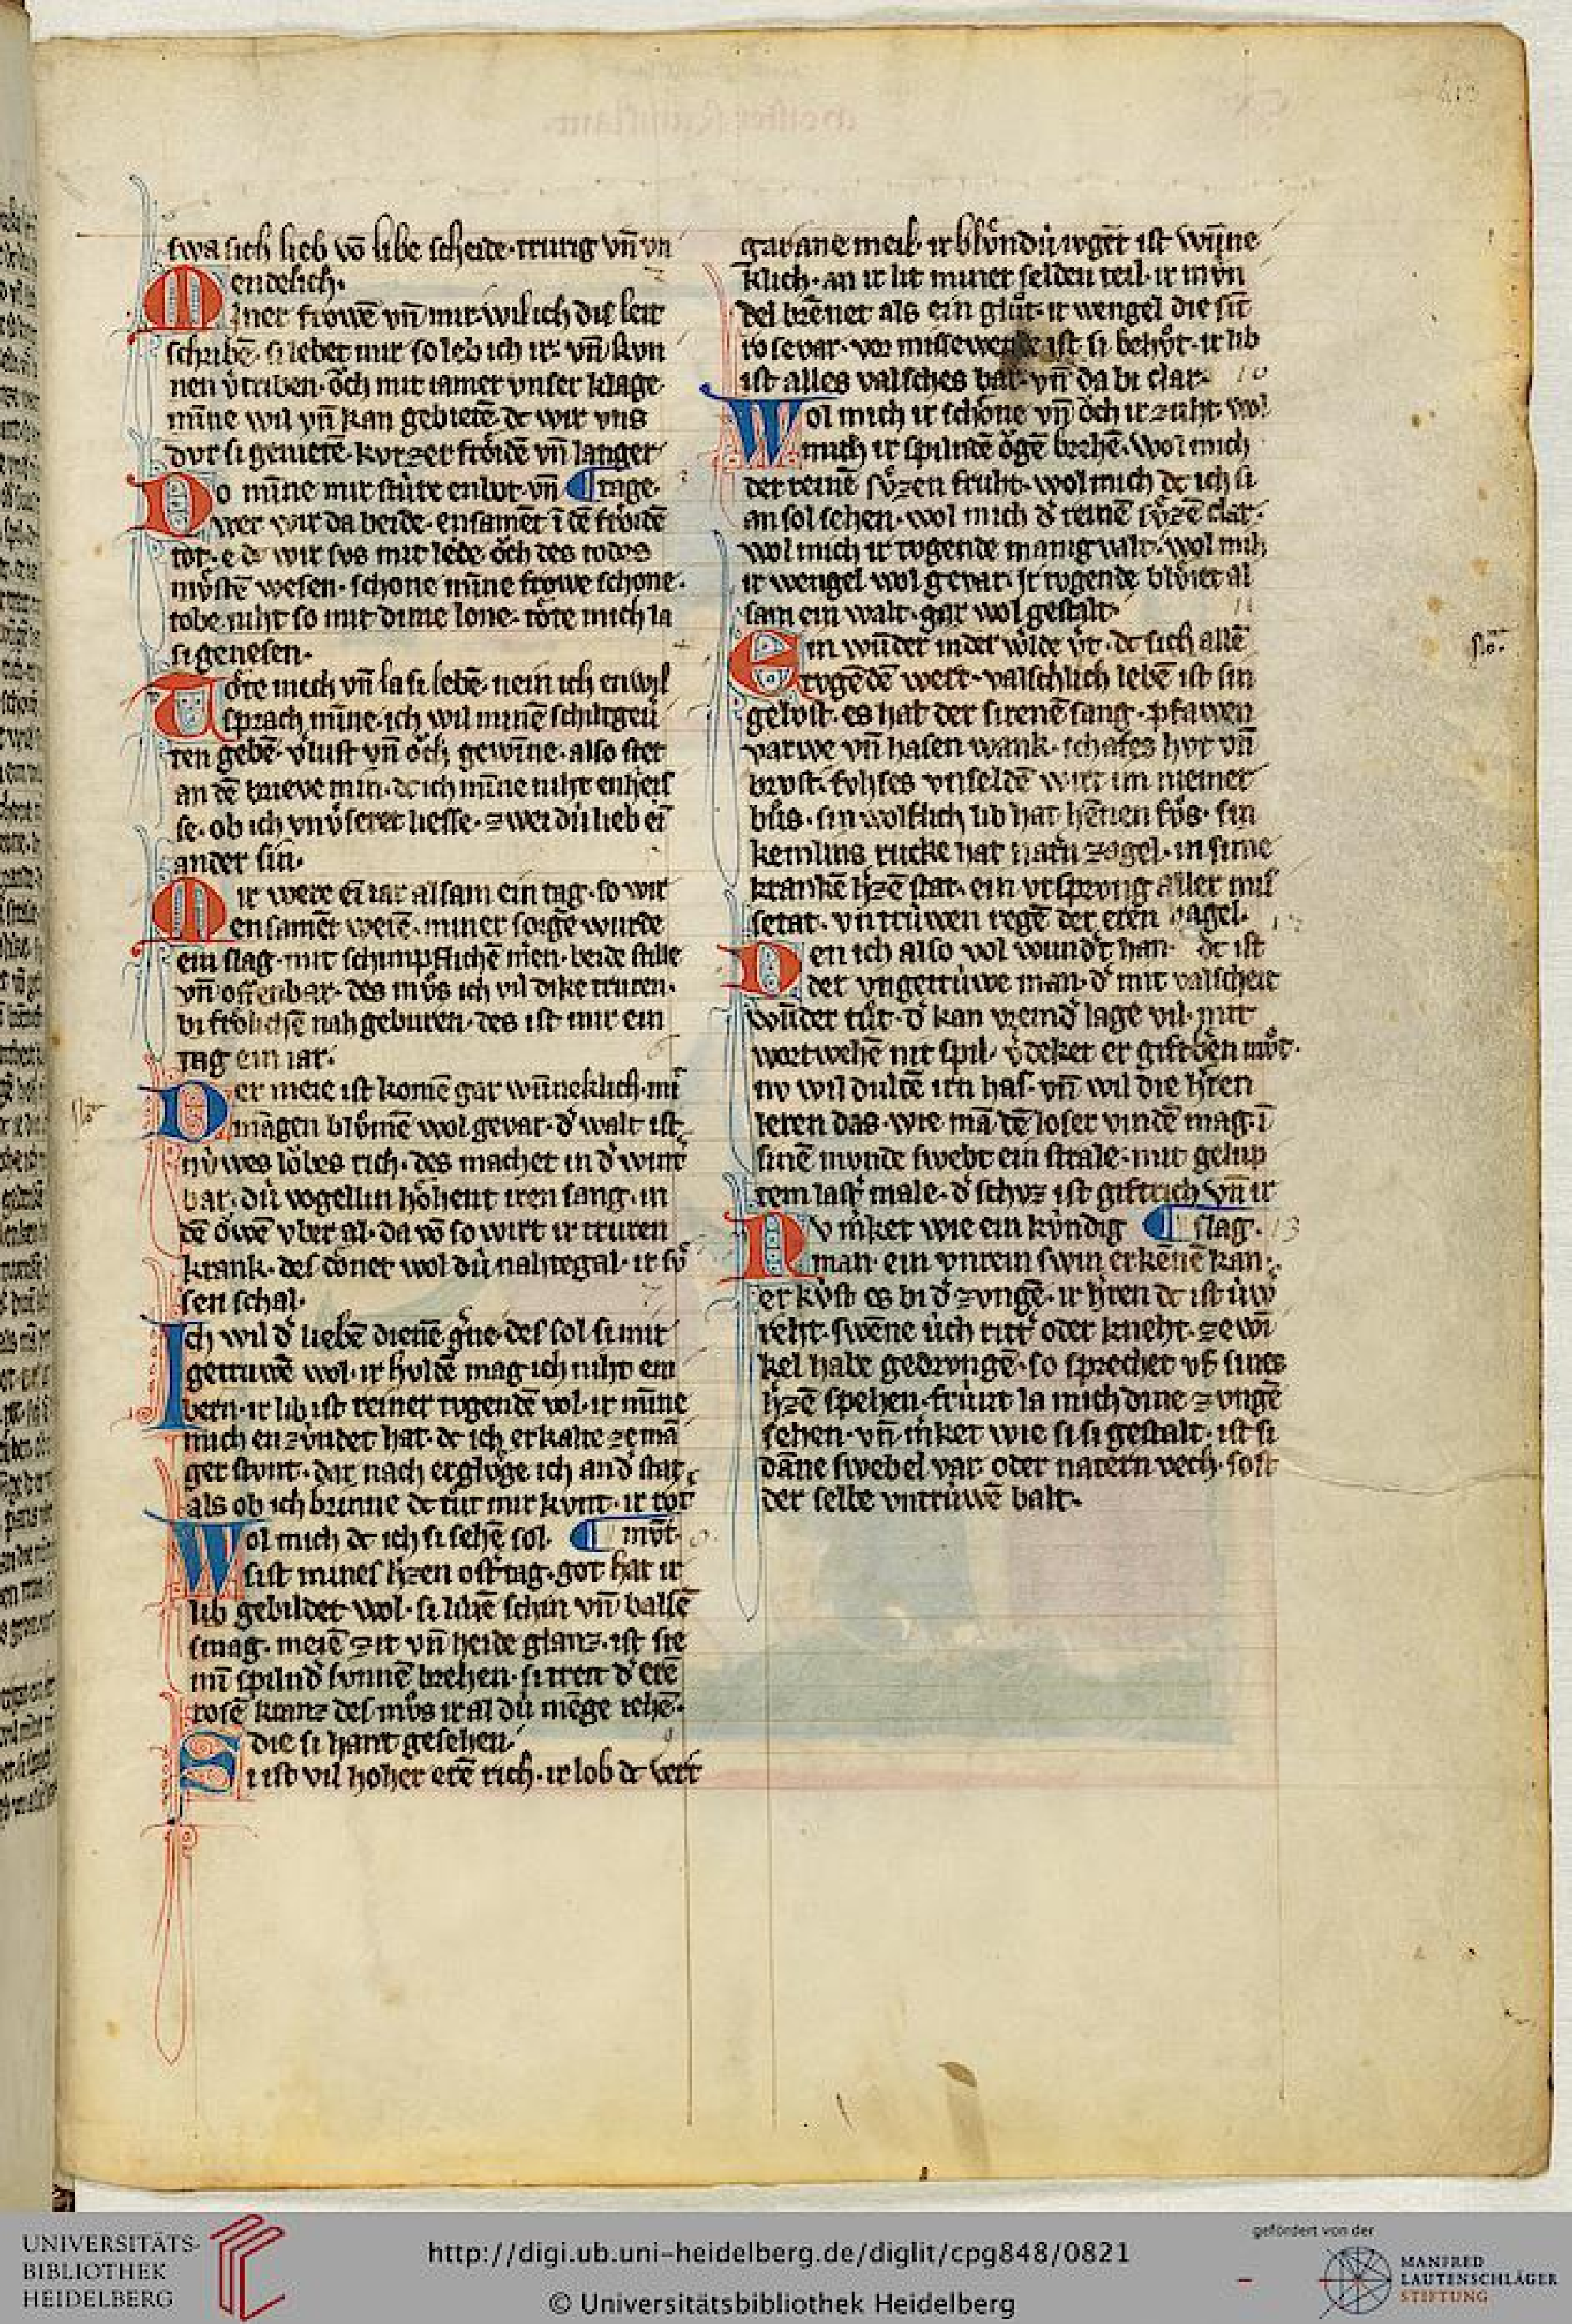 swa sich lieb vō libe scheide·trurig vn̄ vn
endelich·
Miner frowē vn̄ mir·wil ich dis leit
schribē·si lebet mir so leb ich ir·vn̄ kvn
nen v̓triben·ǒch mit iamer vnser klage·
minne wil vn̄ kan gebietē·dc wir vns
dvr si genietē·kvrzer frǒidē vn̄ langer
Do minne mir stúre enbot·vn̄ ¶ tage·
wer wir da beide·ensamēt ī dē frǒidē
tot·e dc wir svs mit lede·ǒch des todes
mv̊stē wesen·schone minne frowe schone·
tobe niht so mit dime lone·tǒte mich la
si genesen·
Tǒte mich vn̄ la si lebē·nein ich enwil
sprach minne·ich wil minē schiltgeu
ten gebē·v̓lust vn̄ ǒch gewinne·also stet
an dē brieve min·dc ich minne niht enheis
se·ob ich vnv̓seret liesse·zwei dú lieb ei
ander sin·
Mir were ei iar alsam ein tag·so wir
ensamēt werē·miner sorgē wurde
ein slag·mit schimpflichē men·beide stille
vn̄ offenbar·des mv̊s ich vil dike truren·
bi frolichē nahgeburen·des ist mir ein
tag ein iar·
Der meie ist komē gar wunneklich·mi
mangen blv̊mē wol gevar·d̓ walt ist
núwes lǒbes rich·des machet in d̓ wint
bar·dú vogellin hǒhent iren sang·in
dē ǒwē vber al·da vō so wirt ir truren
krank·des dǒnet wol dú nahtegal·ir sv̊
sen schal·
Ich wil d̓ liebē dienē g̓ne·des sol si mir
getruwē wol·ir hvldē mag ich niht em
bern·ir lib ist reiner tvgendē vol·ir minne
mich enzvndet hat·dc ich erkalte ze mā
ger stvnt·dar nach erglv̊ge ich and̓ stat
als ob ich brinne dc tůt mir kvnt·ir rǒt
Wol mich dc ich si sehē sol· ¶ mvnt·
si ist mines h̓zen ost̓tag·got hat ir
lib gebildet wol·si liliē schin vn̄ balsē
smag·meiē zit vn̄ heide glanz·ist sie
mī spilnd̓ svnnē brehen·si treit d̓ erē
rosē kranz des mv̊s ir al dú menge iehē·
die si hant gesehen·
Si ist vil hoher erē rich·ir lob dc vert
gar ane meil·ir blv̊ndú ivgēt ist wunne
klich·an ir lit miner selden teil·ir mvn
del brēnet als ein glůt·ir wengel die sint
rosevar·vor missewende ist si behv̊t·ir lib
ist alles valsches bar·vn̄ da bi clar·
Wol mich ir schǒne vn̄ ǒch ir zuht·wol
mich ir spilndē ǒgē brehē·wol mich
der reinē sv̊zen fruht·wol mich dc ich si
an sol sehen·wol mich d̓ reinē sv̊zē clar·
wol mich ir tvgende manigvalt·wol mich
ir wengel wol gevar·ir tvgende blv̊iet al
sam ein walt·gar wol gestalt·
Ein wunder in der wilde v̓t·dc sich allē
tvgēdē wert·valschlich lebē ist sin
gelvst·es hat der sirenē sang·pfawen
varwe vn̄ hasen wank·schafes hvt vn̄
brvst·fvhses vnseldē wirt im niemer
bůs·sin wolflich lib hat hennen fůs·sin
kemlins rucke hat natn̓ zagel·in sime
krankē h̓zē stat·ein vrsprong aller mis
setat·vntrúwen regē der eren hagel·
Den ich also vol wund̓t han·dc ist
der vngetrúwe man·d̓ mit valscheit
wunder tůt·d̓ kan vremd̓ lage vil·mit
wortwehē nit spil·v̓deket er giftbēn mv̊t·
nv wil dultē irn has·vn̄ wil die h̓ren
leren das·wie mā dē loser vindē mag·ī
sinē mvnde swebt ein strale·mit gelup
tem last̓ male·d̓ schvz ist giftrich vn̄ ir
Nv m̓ket wie ein kv́ndig ¶ slag·
man·ein vnrein swin erkēnē kan·
er kv́st es bi d̓ zvngē·ir h̓ren dc ist úw̓
reht·swenne úch ritt̓ oder kneht·ze wī
kel habe gedrvngē·so sprechet vs sines
h̓zē spehen·frúnt la mich dine zvngē
sehen·vn̄ m̓ket wie si si gestalt·ist si
danne swebel var oder natern vech·so ist
der selbe vntrúwē balt·
UNIVERSITÄTS-
BIBLIOTHEK
HEIDELBERG
http://digi.ub.uni-heidelberg.de/diglit/cpg848/0821
© Universitätsbibliothek Heidelberg
gefördert von der
MANFRED
LAUTENSCHLÄGER
STIFTUNG